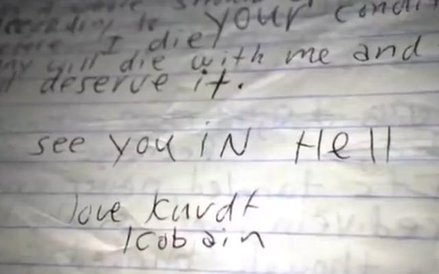 YOUR condi
I die
will die with me and
deserve it.
see YOU iN Hell
love Kurdt
Kobain